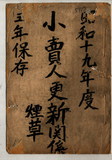 昭和十九年度
小賣人更新関係
煙草
三年保存